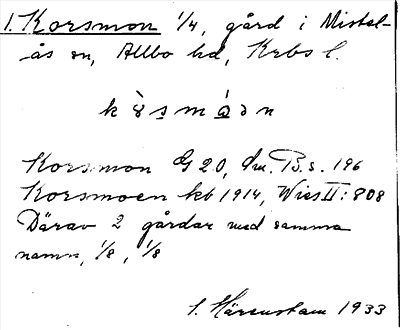 1. Korsmon 1/4, gård i Mistel-
ås sn, Allbo hd, Krbs l.
Korsmon G 20, Sm. B. s. 196
Korsmoen kb 1914, Wies II: 808
Därav 2 gårdar med samma
namn, 1/8, 1/8
S. Härenstam 1933